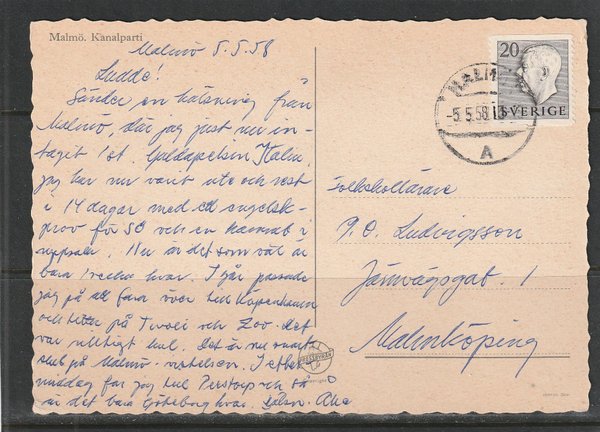 Malmö. Kanalparti
Malmö 5.5.58
Ludde!
Sänder en hälsning från
Malmö, där jag just nu in-
tagit 1 st. Guldapelsin Italia.
Jag har nu varit ute och rest
i 14 dagar med
prov för SÖ och en
Uppsala. Nu är det som väl är
bara 1 vecka kvar. I går passade
jag på att fara över till Köpenhamn
och på Tivoli och Zoo. Det
var riktigt kul. Det är nu snart
på Malmö-vistelsen. I efter-
middag far jag till Perstorp och så
är det bara Göteborg kvar. Åke
20
SVERIGE
MALMÖ
-5.5.58
A
Folkskollärare
P.O. Ludvigsson
Järnvägsgat. 1
Malmköping